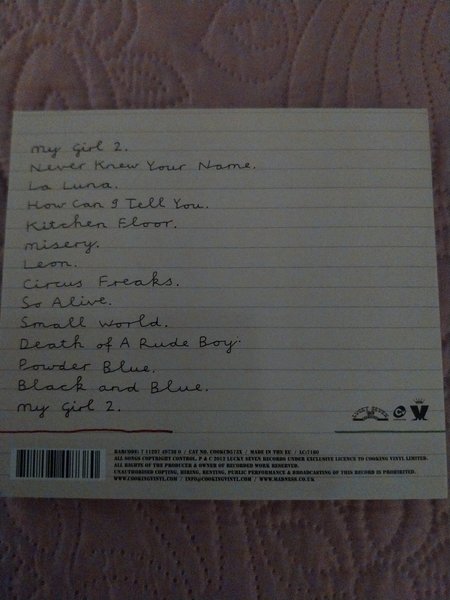 my girl 2.
Never Knew Your Name.
La Luna.
How Can I Tell You.
Kitchen Floor.
misery.
Leon.
Circus Freaks.
So Alive.
Small World.
Death of A Rude Boy..
Powder Blue.
Black and Blue.
my Girl 2.
ALL SONGS COPYRIGHT CONTROL. P & C 2012 LUCKY SEVEN RECORDS UNDER EXCLUSIVE LICENCE TO COOKING VINYL LIMITED.
ALL RIGHTS OF THE PRODUCER & OWNER OF RECORDED WORK RESERVED.
UNAUTHORISED COPYING, HIRING, RENTING, PUBLIC PERFORMANCE & BROADCASTING OF THIS RECORD IS PROHIBITED.
WWW.COOKINGVINYL.COM / INFO@COOKINGVINYL.COM / WWW.MADNESS.CO.UK